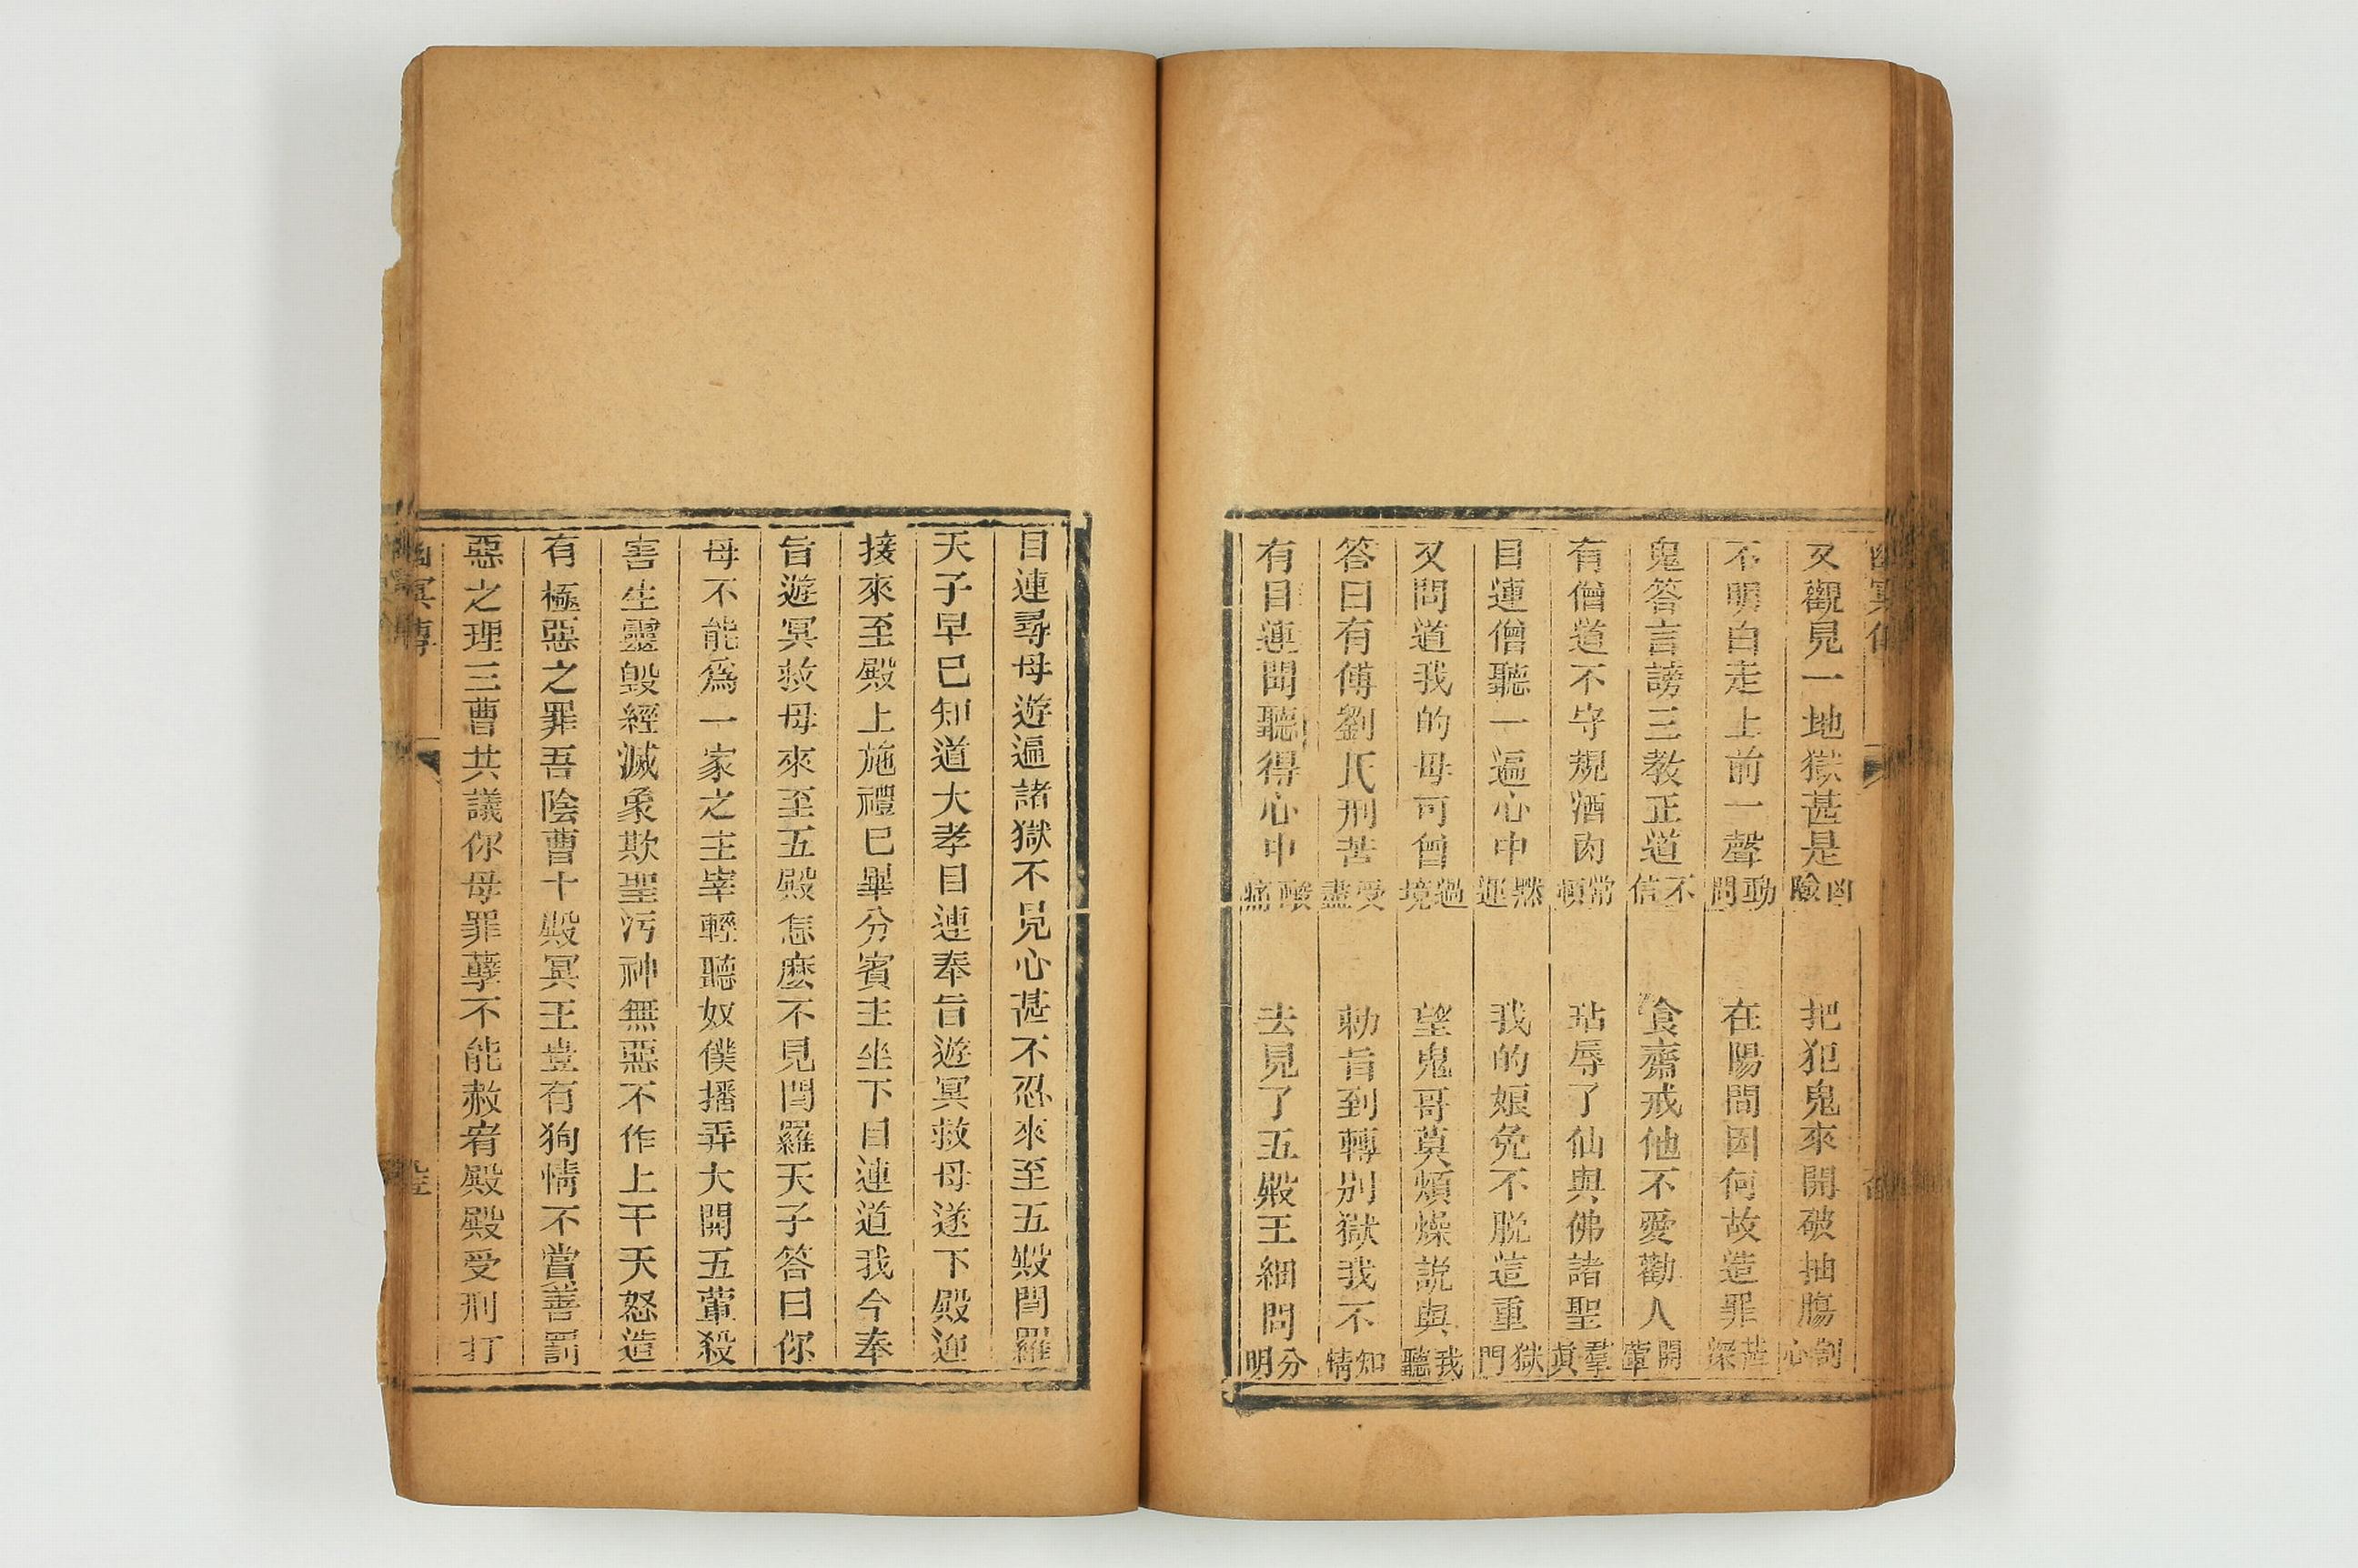 又觀見一地獄甚是凶險　把犯鬼來開破抽腸割心
不明白走上前一聲動問　在陽間因何故造罪孽深
鬼答言謗三教正道不信　食齋戒他不愛勸人開葷
有僧道不守規酒肉常頓　玷辱了仙與佛諸聖羣真
目連僧聽一遍心中撚逥　我的娘免不脫這重獄門
又問道我的母可曾過境　望鬼哥莫煩燥説與我聽
答曰有傅劉氏刑苦受盡　勅旨到轉別獄我不知情
有目連聞聽得心中酸痛　去見了五殿王細問分明
目連尋母遊遍諸獄不見心甚不忍來至五殿閻羅
天子早巳知道大孝目連奉旨遊冥救母遂下殿迎
接來至殿上施禮巳畢分賓主坐下目連道我今奉
旨遊冥救母來至五殿怎麽不見閻羅天子答曰你
母不能爲一家之主宰輕聽奴僕播弄大開五葷殺
害生靈毀經滅象欺聖污神無惡不作上干天怒造
有極惡之罪吾陰曹十殿冥王豈有狥情不賞善罰
惡之理三曹共議你母罪孽不能赦宥殿殿受刑打
幽冥傳